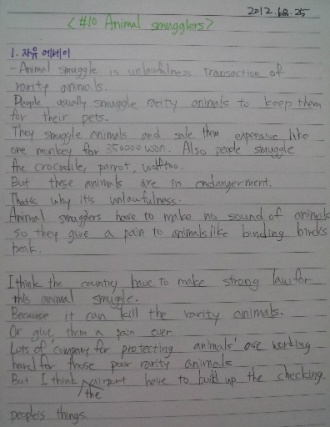 2012.12.25
<#10 Animal smugglers>
1. 자유 에세이
- Animal smuggle is unlawfulness transaction of
rarity animals.
People usually smuggle rarity animals to keep them
for their pets.
They smuggle animals and sale them expensive like
one monkey for 350000 won. Also people smuggle
the crocodile, parrot,
But these animals are in endangerment.
Thats why it's unlawfulness.
Animal smugglers have to make no sound of animals
so they give a pain to animals like binding bird's
beak.
I think the country have to make strong law for
this animal smuggle.
Because it can kill the rarity animals.
Or give them a pain ever
Lots of company for protecting animals' are working
hard for those poor rarity animals
But I think the airport have to build up the checking
people's things.